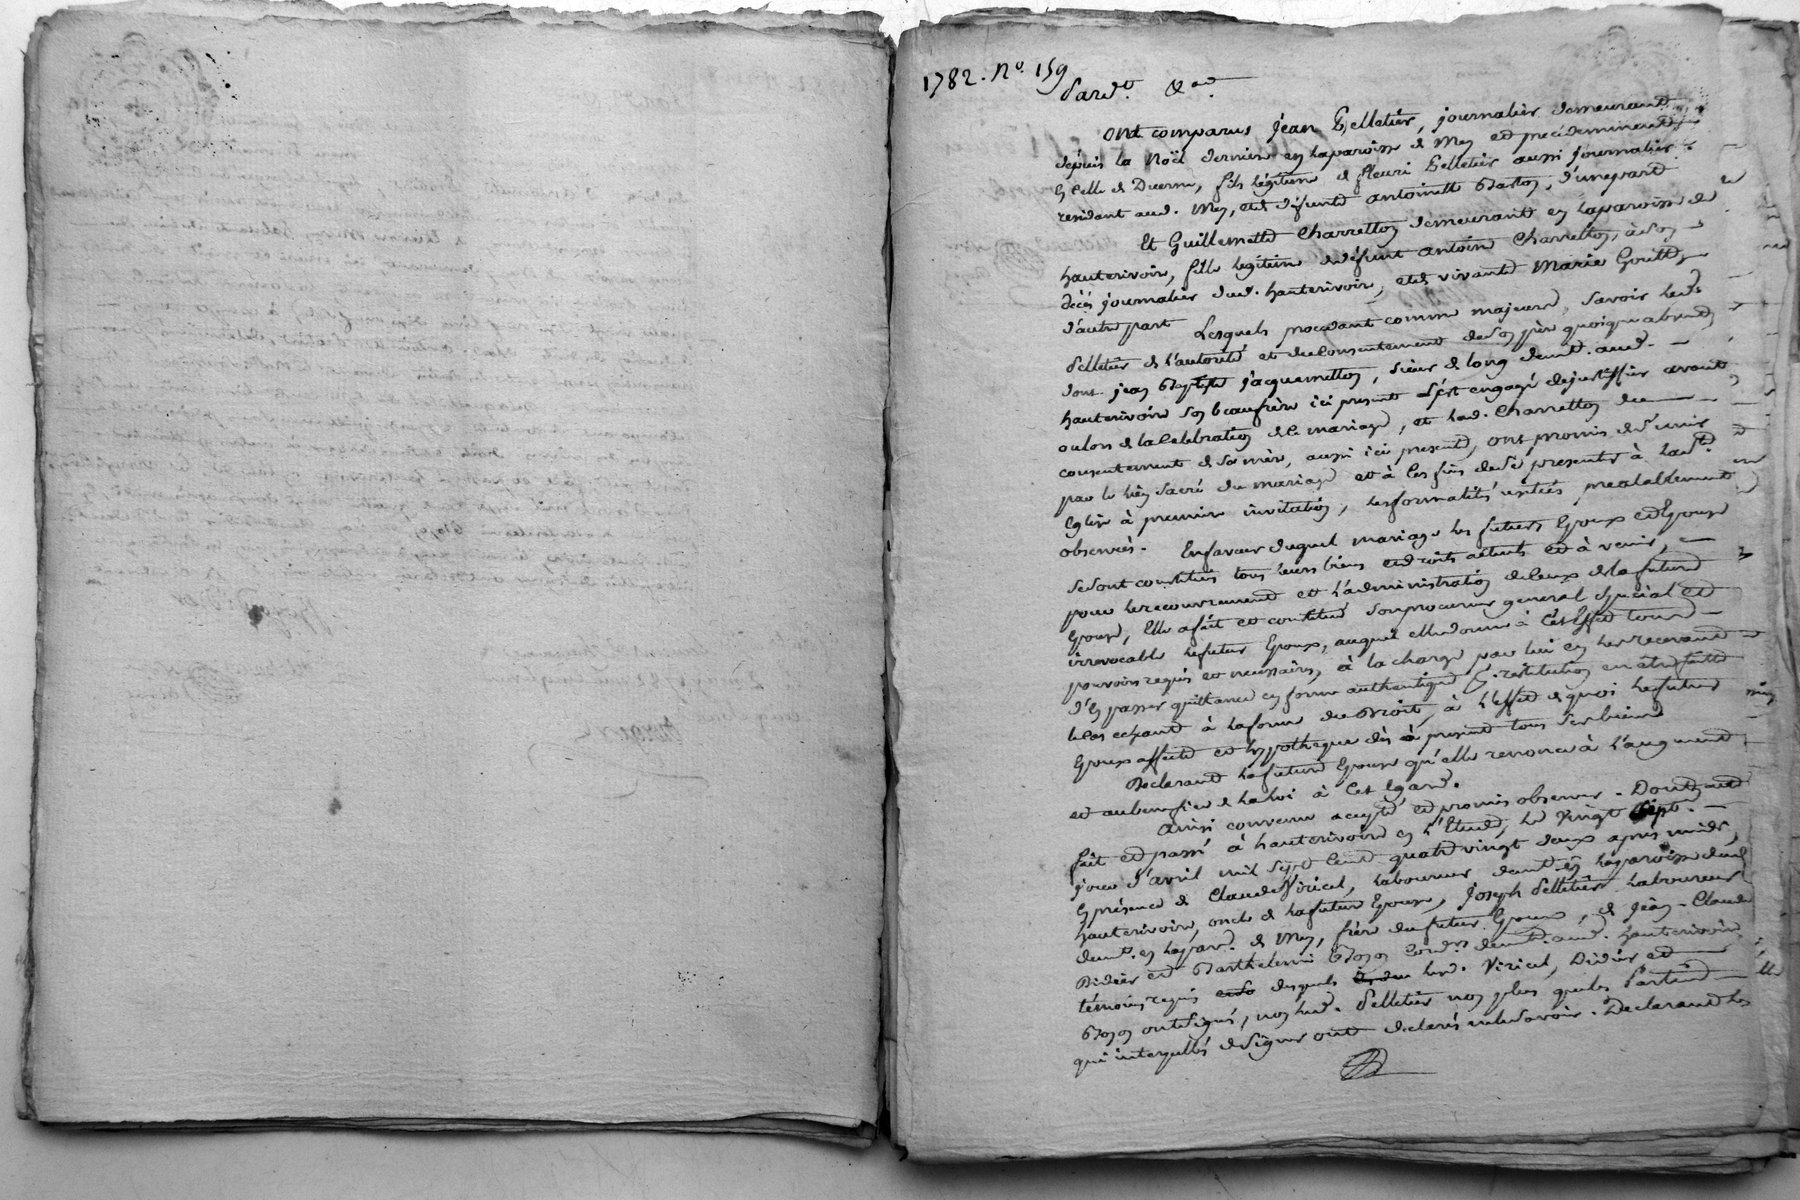 1782. No. 159
Pardt. &a.
ont comparus Jean Pelletier, journalier demeurant
depuis la Noël derniere en la paroisse de Mey et precedemment
en celle de Duerne, fils légitime de fleuri Pelletier aussi journalier
residant aud. Mey, et de défunte antoinette Baston, d'une part
Et Guillemette Charretton demeurant en la paroisse de
hauterivoire, fille legitime de défunt antoine Charretton, à son
décès journalier aud. hauterivoire, et de vivante Marie Goutte
d'autre part Lesquels procedant comme majeurs, savoir led.
Pelletier de l'autorité et du consentement de son père quoique absent
dont jean Baptiste jacquemetton, sieur de long demt. aud.
hauterivoire son beaufrère ici present s'est engagé de justiffier avant
ou lors de la Celebration de ce mariage, et lad. Charretton du
consentement de sa mère, aussi ici presente, ont promis de s'unir
par le lien sacré du mariage et à ces fins de se presenter à lad. ste.
Eglise à premiere invitation, les formalités usitées prealablement
observées. En faveur duquel mariage les futurs Epoux et Epouse
se sont constitués tous leurs biens et droits actuels et à venir,
pour le recouvrement et l'administration de ceux de la future
Epouse, Elle a fait et constitué son procureur general spécial et
irrevocable le futur Epoux, auquel elle donne à cet Effet tous
pouvoirs requis et necessaires, à la charge par lui en les recevant
d'en passer quittance en forme authentique Et restitution en être faitte
le cas echeant à la forme du Droit, à l'effet de quoi le futur
Epoux affecte et hypotheque dès à présent tous ses biens
Declarant la future Epouse qu'elle renonce à l'augment
et au benefice de la loi à cet Egard.
ainsi convenu accepté et promis observer. Dont acte
fait et passé à hauterivoire en l'Etude, le vingt sept
jour d'avril mil sept cent quatre vingt deux après midi,
En présence de Claude Viricel, laboureur demt. en la paroisse dud.
hauterivoire, oncle de la future Epouse, Joseph Pelletier laboureur
demt. en la par. de Mey, frère du futur Epoux, de Jean-Claude
Didier et Barthelemi Bozon Cord.rs demt. aud. hauterivoire
témoins requis desquels led. Viricel, Didier et
Bozon ont signé, non led. Pelletier non plus que les Parties
qui interpellés de signer ont declarés ne le savoir. Declarant les